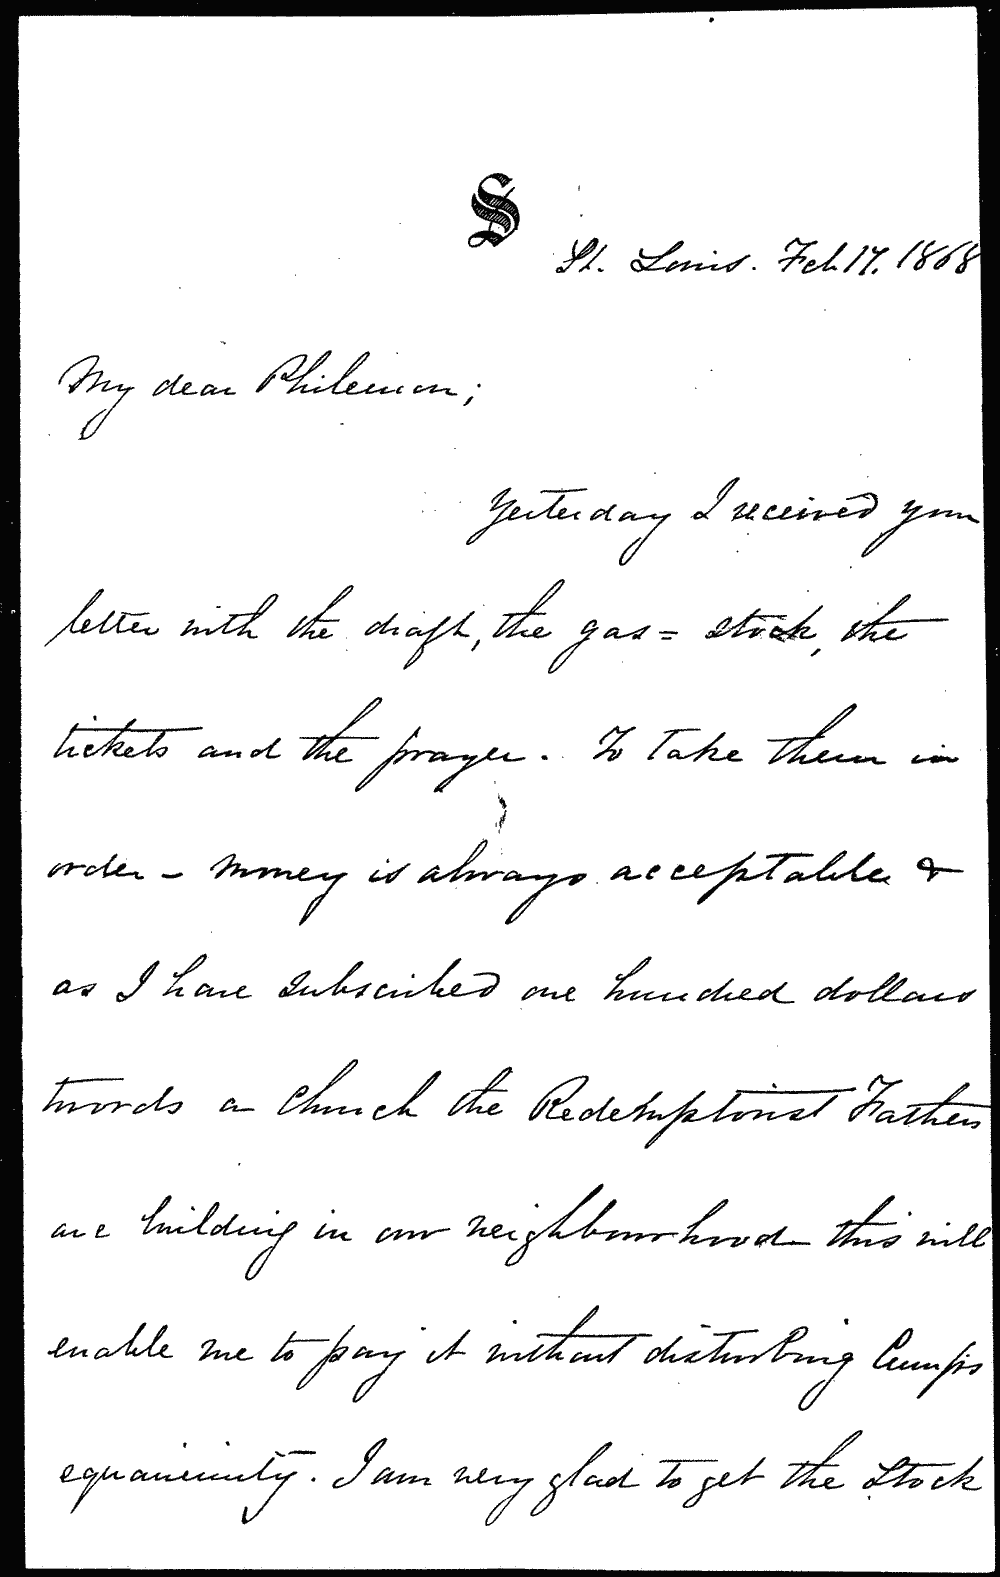 S
St. Louis. Feb. 17. 1868
My dear Philemon;
Yesterday I received your
letter with the draft, the gas = stock, the
tickets and the prayer. To take them in
order – money is always acceptable &
as I have subscribed one hundred dollars
twords a church the Redemptorist Fathers
are building in our neighbourhood – this will
enable me to pay it without disturbing Cump's
equanimity. I am very glad to get the Stock